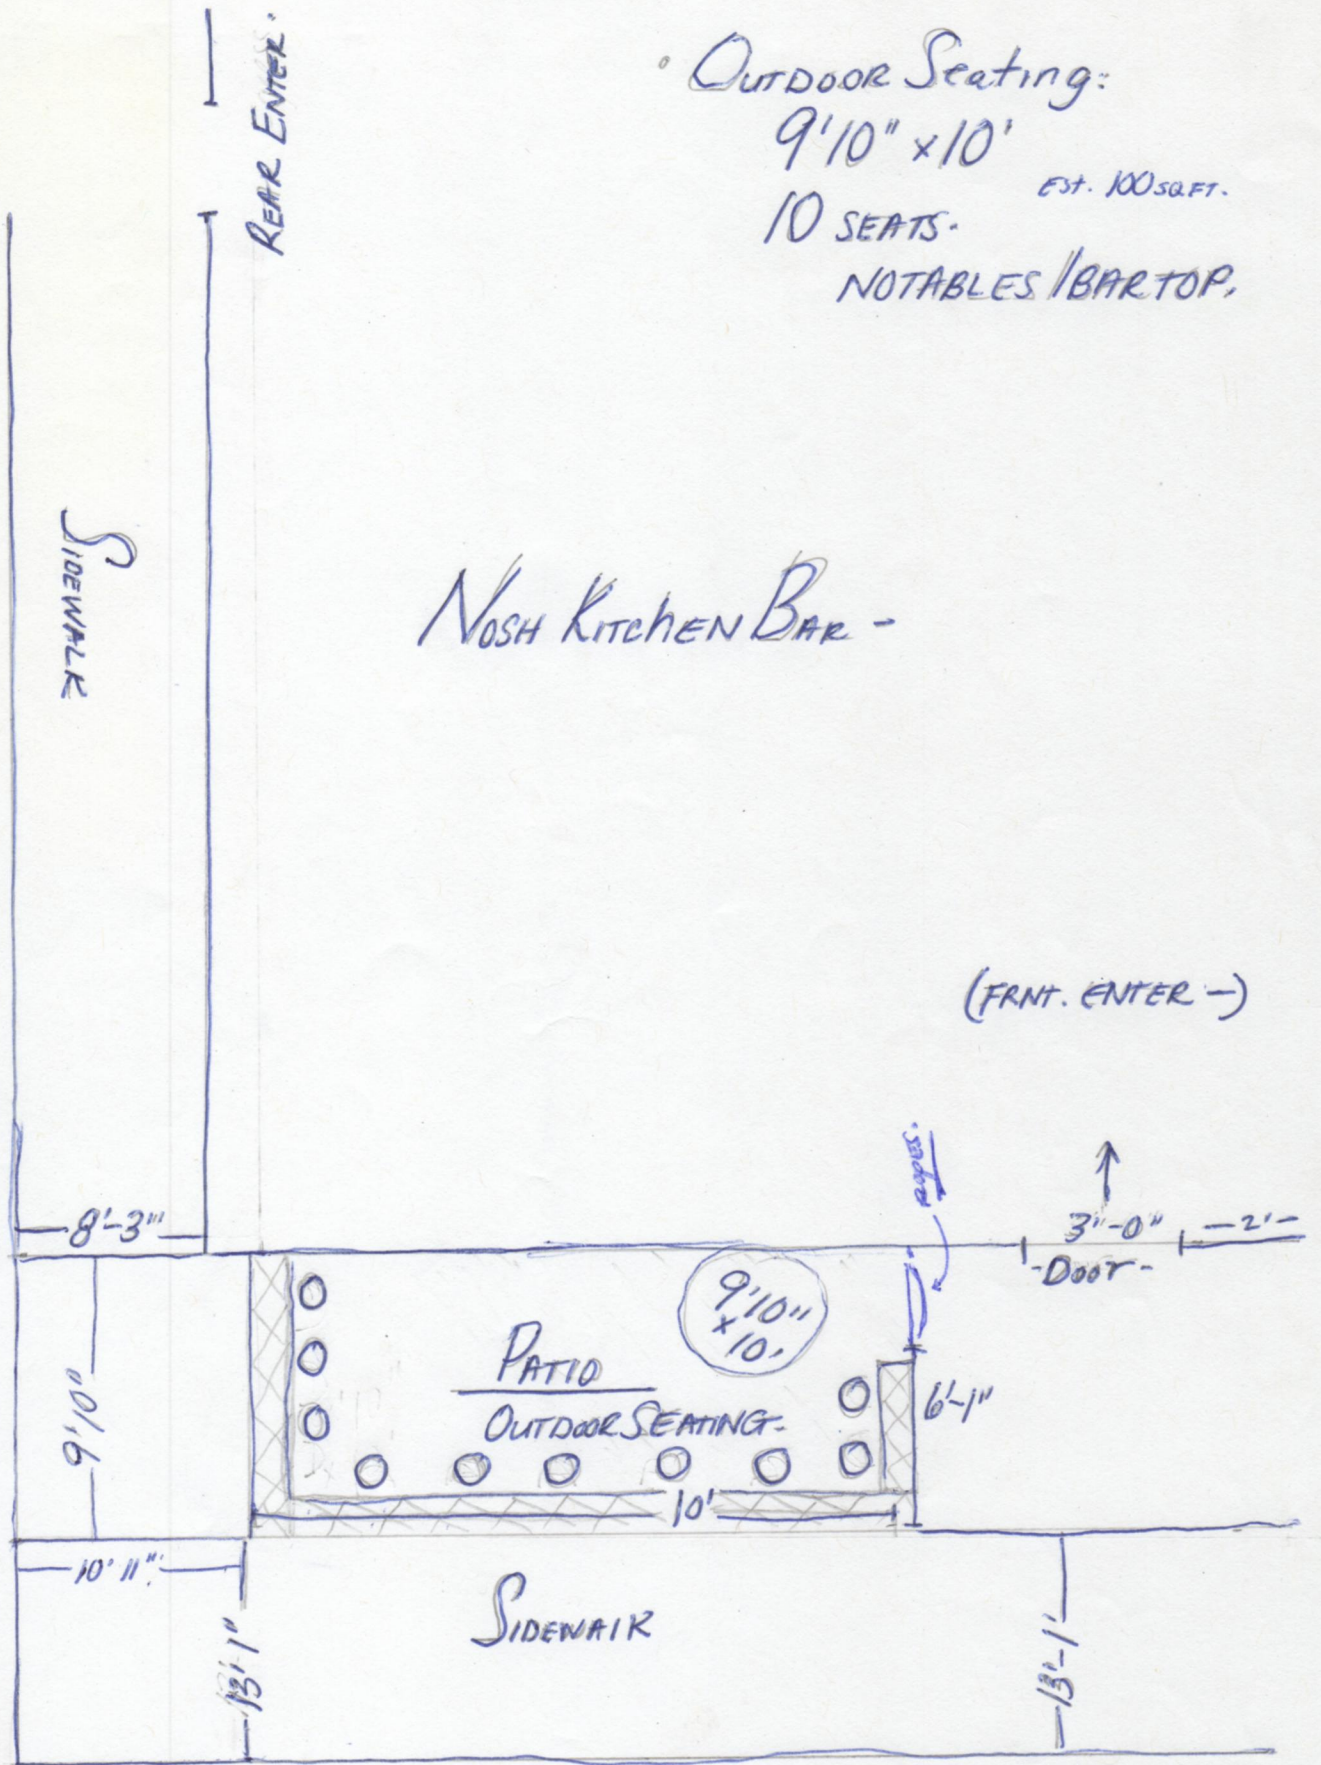 REAR ENTER.
OUTDOOR Seating:
9'10" x 10'
EST. 100 SQ FT.
10 SEATS.
NOTABLES / BAR TOP.
SIDEWALK
NOSH KITCHEN BAR -
(FRNT. ENTER -)
ropes.
8'-3"
3"-0"
-2'-
-DOOR-
9'10"
9'10"
x
10.
PATIO
OUTDOOR SEATING.
6'-1"
10'
10'11"
13'-1"
SIDEWALK
13'-1'